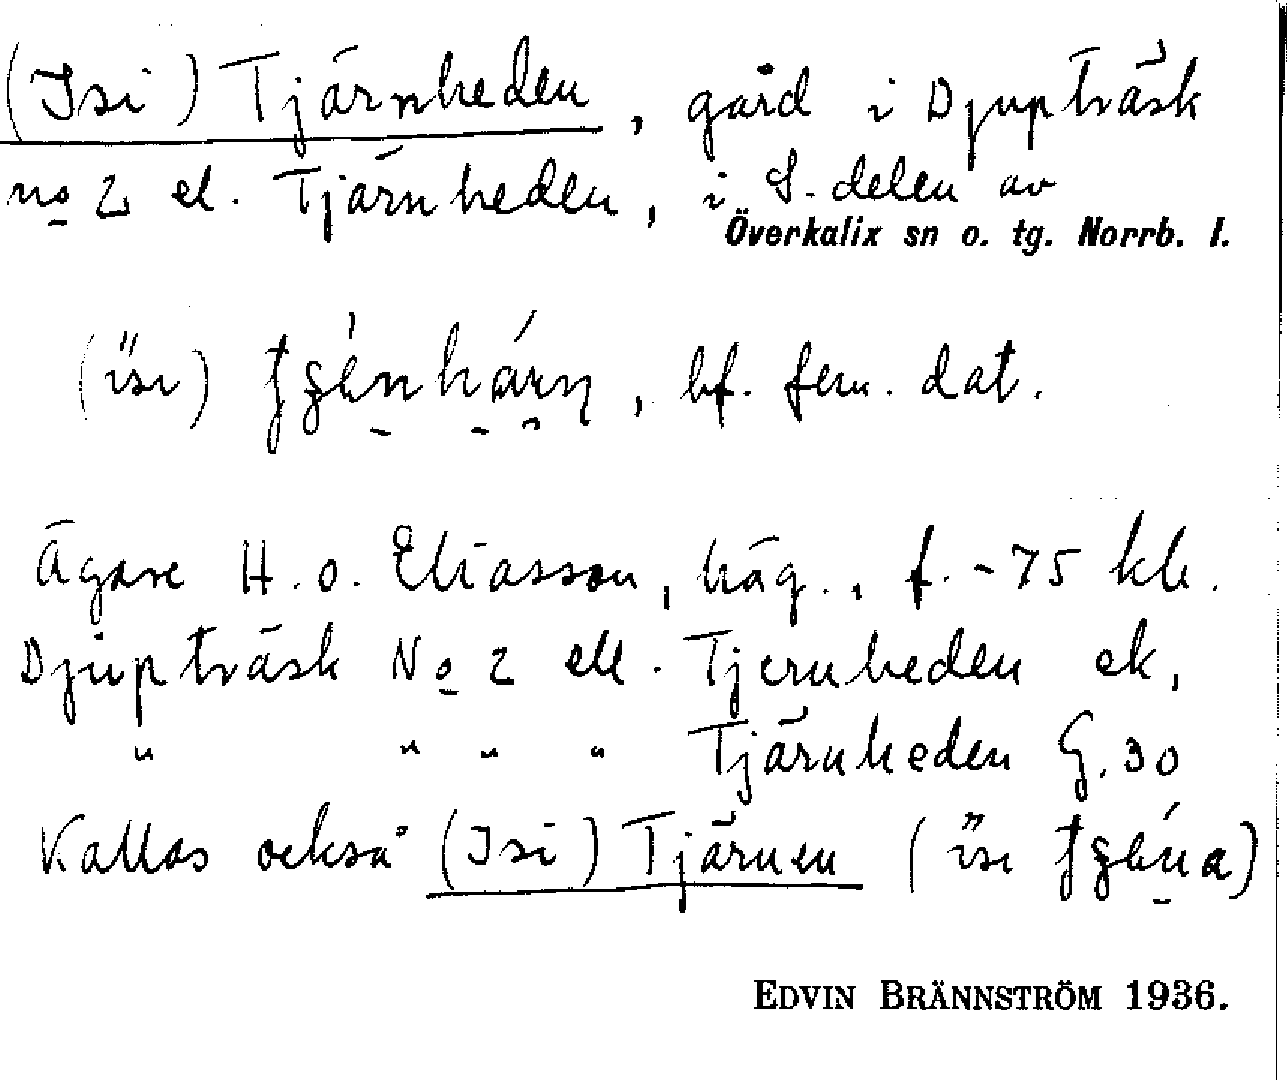 (Isi) Tjärnheden, gård i Djupträsk
no 2 el. Tjärnheden, i S. delen av
Överkalix sn o. tg. Norrb. l.
(isi) , bf. fem. dat.
Ägare H. O. Eliasson, häg., f. -75 klr.
Djupträsk No 2 ell. Tjernheden ek,
" " " " Tjärnheden G. 30
Kallas också (Isi) Tjärnen (isi )
EDVIN BRÄNNSTRÖM 1936.